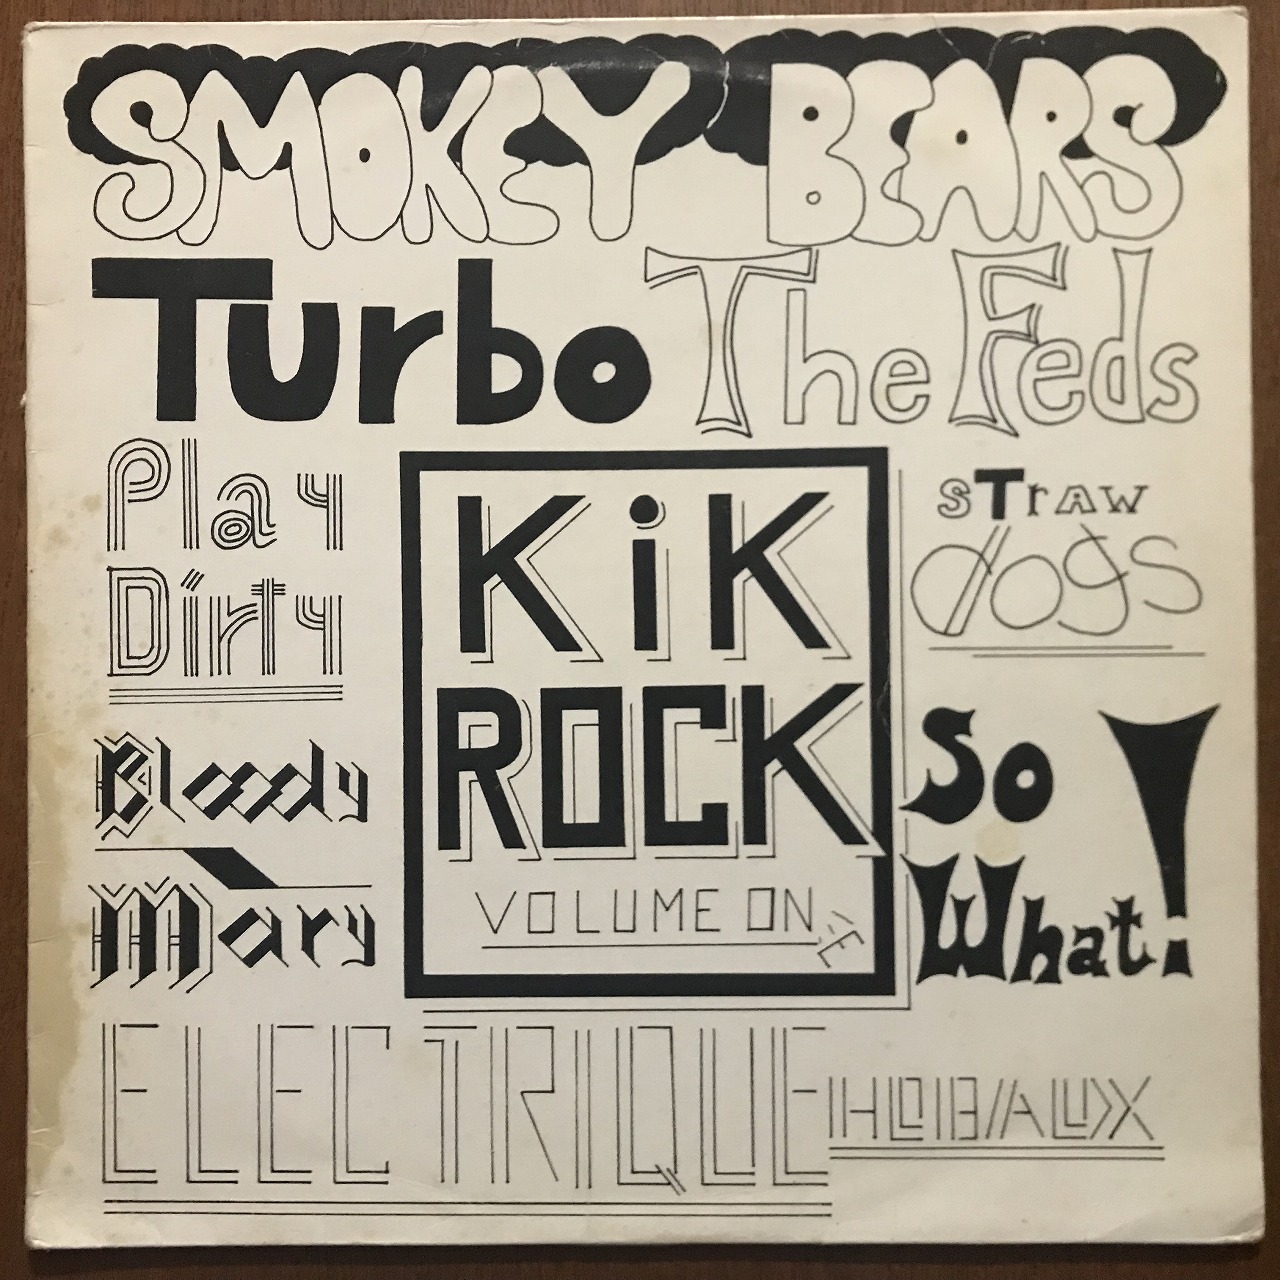 SMOKEY BEARS
Turbo The Feds
Play
Dirty
Bloody
Mary
KiK
ROCK
VOLUME ONE
sTrAW
dogs
So
What!
ELECTRIQUE